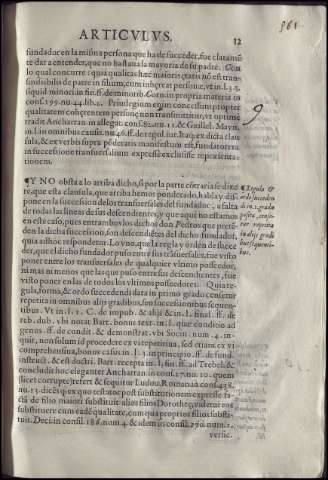 861
ARTICVLVS.
12
fundador en la misma persona que ha de succeder, fue clara mẽ
te dar a entender, que no bastaua la mayoria de su padre. Cõ
lo qual concurre: quia qualitas hæc maioris ætatis nõ est tran-
smissibilis de patre in filium, cum inhęreat personæ, vt in l. 3. §.
si quid minori. in fin. ff. de minorib. Corn. in propria materia in
cons. 199. nu. 44. lib. 2. Priuilegium enim concessum propter
qualitatem cohęrentem personę non transmittitur, vt optime
tradit Ancharran. in allegat. cons. 82. nu. 12. & Guillel. Mayn.
in l. in omnibus causis. nu. 46. ff. de regul. iur. Itaq; ex dicta clau
sula, & ex verbis supra põderatis manifestum est, fundatorem
in successione transuersalium expressè exclusisse repræsenta-
tionem.
¶Y NO obsta a lo arriba dicho, si por la parte cõtraria se dixe
re, que esta clausula, que arriba hemos ponderado, habla y dis
pone en la succession de los transuersales del fundador, a falta
de todas las lineas de sus descendientes, y que aqui no estamos
en este caso, pues entrambos los dichos don Pedros que preten
den la dicha succession, son descendiẽtes del dicho fundador,
quia adhoc respondetur. Lo vno, que la regla y orden de succe-
der, que el dicho fundador puso entre sus trãsuersales, fue visto
poner entre los transuersales de qualquier vltimo posseedor,
ni mas ni menos que las que puso entre sus descendientes, fue
visto poner en las de todos los vltimos posseedores. Quia re-
gula, forma, & ordo succedendi data in primo gradu censetur
repetita in omnibus alijs gradibus, seu successionibus sequen-
tibus. Vt in l. 1. C. de impub. & alijs & in l. final. ff. de
reb. dub. vbi notat Bart. bonus text. in l. que conditio ad
genus. ff. de condit. & demonstrat. vbi Socin. num. 4. in-
quit, non solum id procedere ex vi repetitiua, sed etiam ex vi
comprehensiua, bonus casus in l. 3. in principio. ff. de fund.
instruct. & est doctri. Bart. recepta in l. fin. ff. ad Trebel. &
concludit hoc eleganter Ancharran. in cons.
nu. 10. quem
licet corruptè refert & sequitur Ludou. Romanus cons. 438.
nu. 13. dicẽs q̃ ex quo testator post substitutionem expresse fa-
ctã de filio maiori substituit alios filios Dorotheę, videtur eos
substituere cum eadẽ qualitate, cum qua proprios filios substi-
tuit. Deci. in consil. 186. num. 4. & idem in consil. 270. num. 2.
versic.
¶Regula &
ordo succedẽn
di in 1. gradu
posita, cense-
tur repetita
in alijs gradi
bus sequenti-
bus.